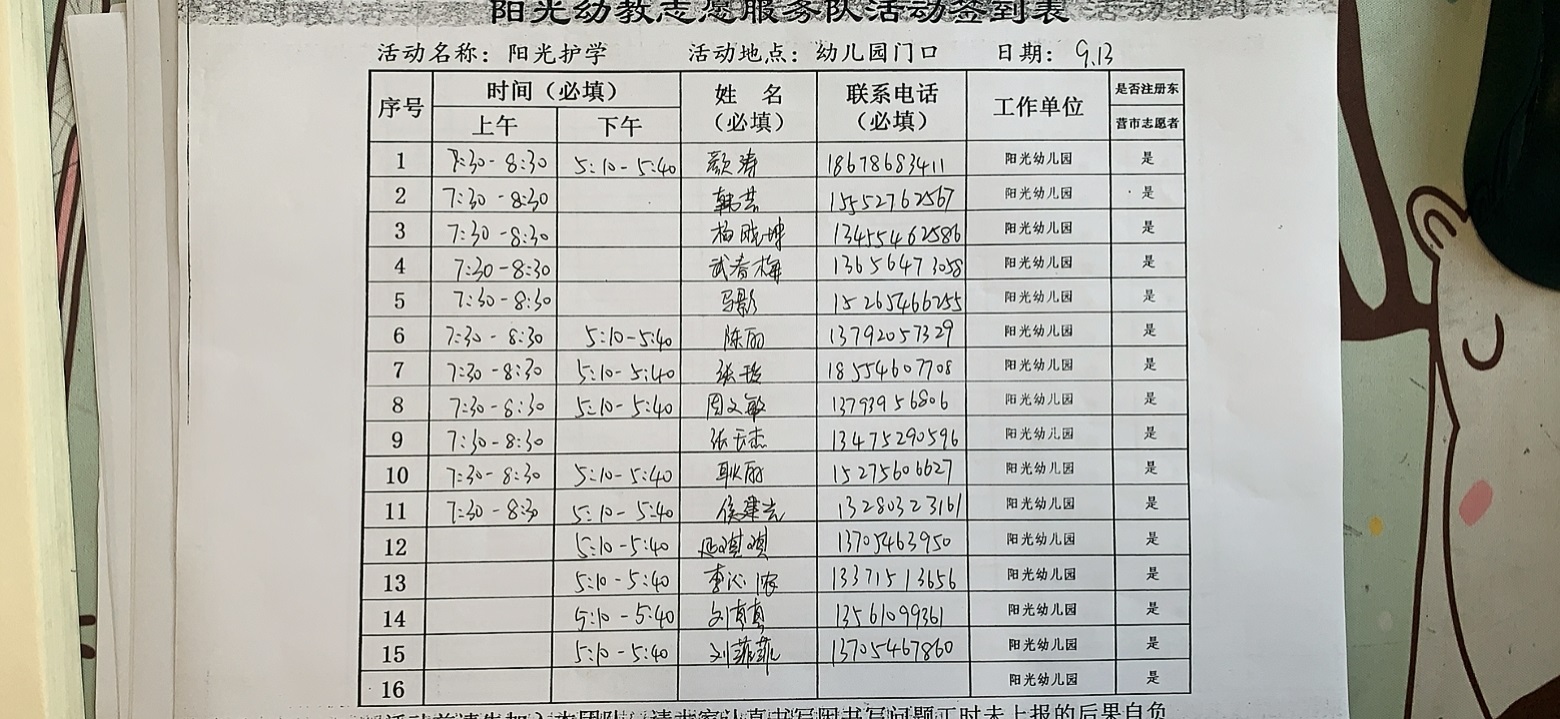 阳光幼教志愿服务队活动签到表
活动名称：阳光护学 活动地点：幼儿园门口 日期：9.13
序号 时间（必填） 姓 名（必填） 联系电话（必填） 工作单位 是否注册东营市志愿者
上午 下午
1 7:30-8:30 5:10-5:40 颜涛 18678683411 阳光幼儿园 是
2 7:30-8:30 韩芸 15552762567 阳光幼儿园 是
3 7:30-8:30 杨晓坤 13455462586 阳光幼儿园 是
4 7:30-8:30 武春梅 13656473058 阳光幼儿园 是
5 7:30-8:30 马影 15265466255 阳光幼儿园 是
6 7:30-8:30 5:10-5:40 陈丽 13792057329 阳光幼儿园 是
7 7:30-8:30 5:10-5:40 18554607708 阳光幼儿园 是
8 7:30-8:30 5:10-5:40 周文敏 13793956806 阳光幼儿园 是
9 7:30-8:30 张云杰 13475290596 阳光幼儿园 是
10 7:30-8:30 5:10-5:40 耿丽 15275606627 阳光幼儿园 是
11 7:30-8:30 5:10-5:40 侯建云 13280323161 阳光幼儿园 是
12 5:10-5:40 13705463950 阳光幼儿园 是
13 5:10-5:40 13371513656 阳光幼儿园 是
14 5:10-5:40 13561099361 阳光幼儿园 是
15 5:10-5:40 刘菲菲 13705467860 阳光幼儿园 是
16 阳光幼儿园 是